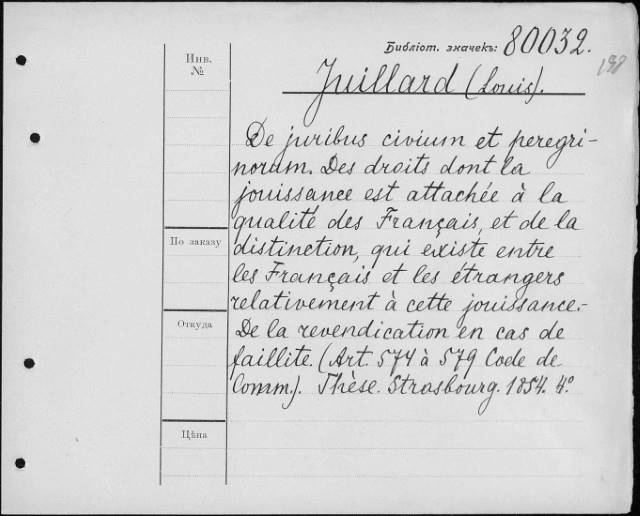 Библіот. значекъ: 80032.
198
Инв.
№
Juillard (Louis).
De juribus civium et peregri-
norum. Des droits dont la
jouissance est attachée à la
qualité des Français, et de la
distinction, qui existe entre
les Français et les étrangers
relativement à cette jouissance.-
De la revendication en cas de
faillite. (Art. 574 à 579 Code de
Comm.). Thèse. Strasbourg. 1854. 4°
По заказу
Откуда
Цѣна